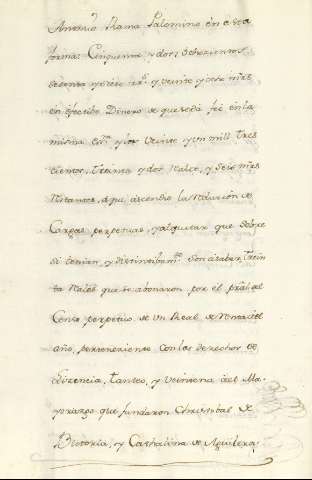 Antonio Rama Palomino en esta
forma: Cinquenta y dos, ochozientos
setenta y siete rs. y veinte y tres mrs
en efectibo Dinero de que se da fee en la
misma Esra y los veinte y un mill tres
cientos, treinta y dos Reales, y seis mrs
restantes, a que ascendio la relacion de
Cargas perpetuas, y alquitar que sobre
si tenian, y distintibamte Son a saber, trein
ta Reales que se abonaron por el pral del
Censo perpetuo de Un Real de Renta all
año, perteneciente con los derechos de
Lizencia, tanteo, y veintena del Ma-
yorazgo que fundaron Christobal de
Bictoria, y Cathalina de Aguilera